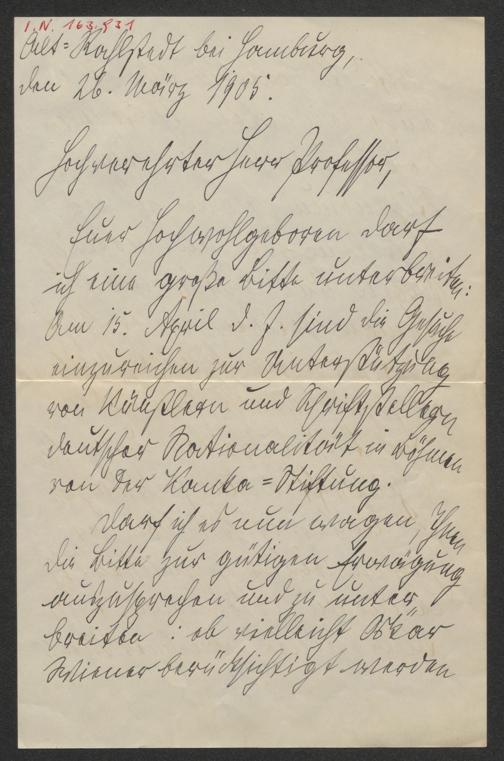 I.N. 163.931
Alt=Rahlstedt bei Hamburg,
den 26. März 1905.
Hochverehrter Herr Professor,
Euer Hochwohlgeboren darf
ich eine große Bitte unterbreiten:
Am 15. April d. J. sind die Gesuche
einzureichen zur Unterstützung
von Künstlern und Schriftstellern
deutscher Nationalität in Böhmen
von der Kanka=Stiftung.
Darf ich es nun wagen, Ihnen
die Bitte zur gütigen Erwägung
auszusprechen und zu unter
breiten: ob vielleicht Oskar
Wiener berücksichtigt werden